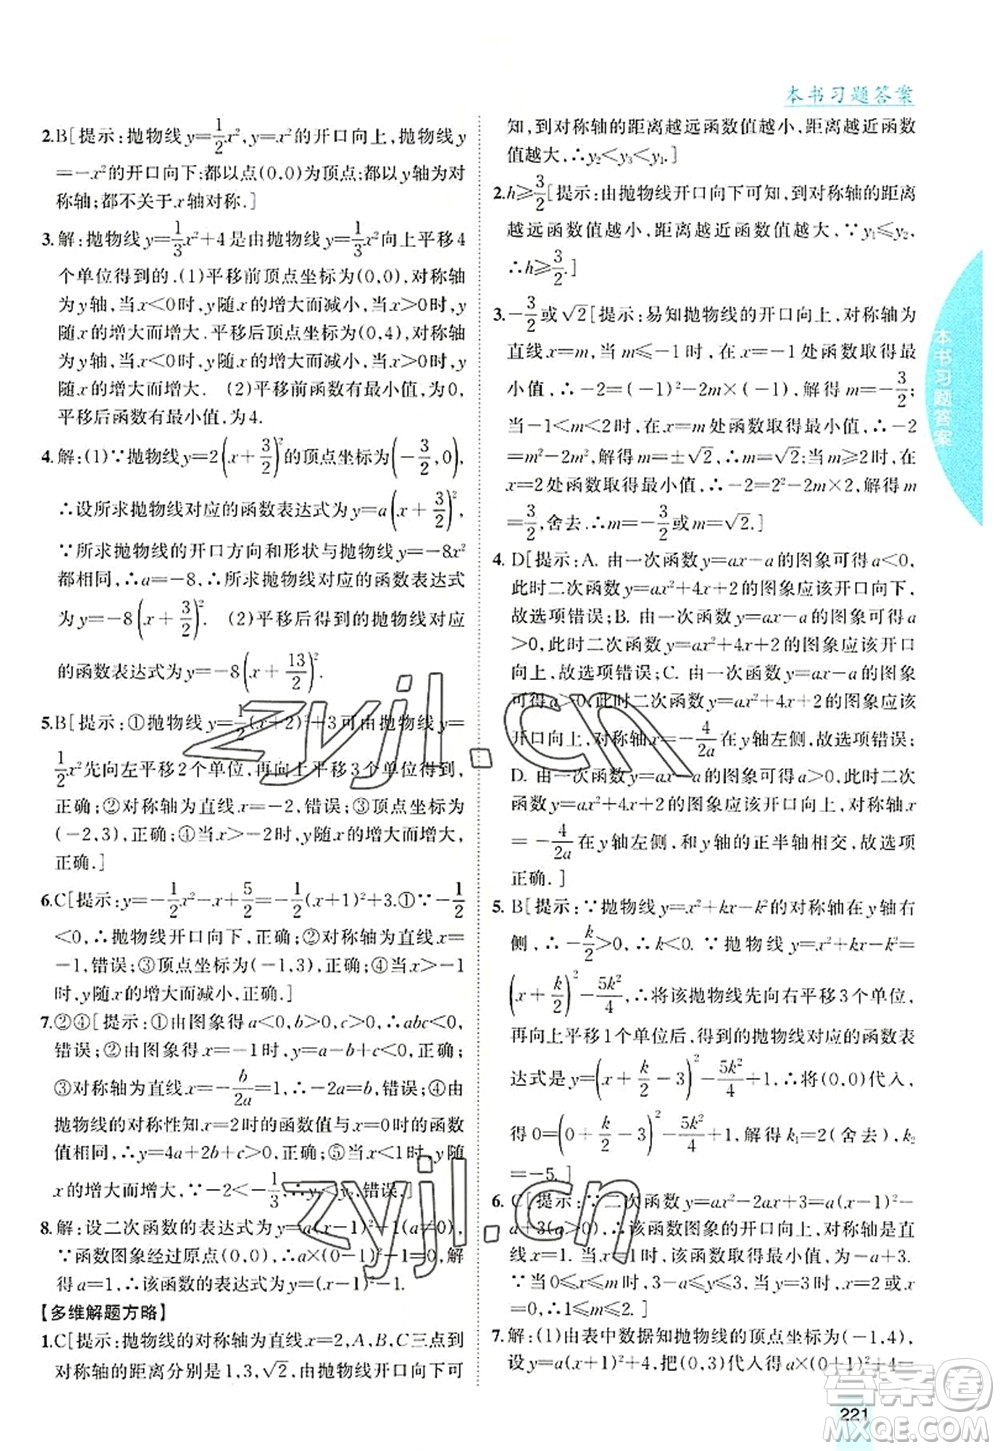 本书习题答案
2.B[提示:抛物线y=\frac{1}{2}x²,y=x²的开口向上,抛物线y
=-x²的开口向下;都以点(0,0)为顶点;都以y轴为对
称轴;都不关于x轴对称.]
3.解:抛物线y=\frac{1}{3}x²+4是由抛物线y=\frac{1}{3}x²向上平移4
个单位得到的.(1)平移前顶点坐标为(0,0),对称轴
为y轴,当x<0时,y随x的增大而减小,当x>0时,y
随x的增大而增大.平移后顶点坐标为(0,4),对称轴
为y轴,当x<0时,y随x的增大而减小,当x>0时,y
随x的增大而增大. (2)平移前函数有最小值,为0,
平移后函数有最小值,为4.
4.解:(1)∵抛物线y=2(x+\frac{3}{2})²的顶点坐标为(-\frac{3}{2},0),
∴设所求抛物线对应的函数表达式为y=a(x+\frac{3}{2})².
∵所求抛物线的开口方向和形状与抛物线y=-8x²
都相同,∴a=-8,∴所求抛物线对应的函数表达式
为y=-8(x+\frac{3}{2})². (2)平移后的抛物线对应
的函数表达式为y=-8(x+\frac{13}{2})².
5.B[提示:①抛物线y=\frac{1}{2}(x+2)²+3可由抛物线y=
\frac{1}{2}x²先向左平移2个单位,再向上平移3个单位得到,
正确;②对称轴为直线x=-2,错误;③顶点坐标为
(-2,3),正确;④当x>-2时,y随x的增大而增大,
正确.]
6.C[提示:y=-\frac{1}{2}x²-x+\frac{5}{2}=-\frac{1}{2}(x+1)²+3.①∵-\frac{1}{2}
<0,∴抛物线开口向下,正确;②对称轴为直线x=
-1,错误;③顶点坐标为(-1,3),正确;④当x>-1
时,y随x的增大而减小,正确.]
7.②④[提示:①由图象得a<0,b>0,c>0,∴abc<0,
错误;②由图象得当x=1时,y>0,∴a+b+c>0,正确;
③对称轴为直线x=-\frac{b}{2a}=1,∴b=-2a,错误;④由
抛物线的对称性知x=2时的函数值与x=0时的函数
值相同,∴y=4a+2b+c>0,正确;⑤当x<1时,y随
x的增大而增大,∵-2<-\frac{1}{3},∴y₁<y₂,错误.]
8.解:设二次函数的表达式为y=a(x-1)²-1(a≠0).
∵函数图象经过原点(0,0),∴a×(0-1)²-1=0,解
得a=1,∴该函数的表达式为y=(x-1)²-1.
【多维解题方略】
1.C[提示:抛物线的对称轴为直线x=2,A,B,C三点到
对称轴的距离分别是1,3,√2,由抛物线开口向下可
知,到对称轴的距离越远函数值越小,距离越近函数
值越大,∴y₂<y₃<y₁.]
2.h≥\frac{3}{2}[提示:由抛物线开口向下可知,到对称轴的距离
越远函数值越小,距离越近函数值越大,∵y₁≤y₂,
∴h≥\frac{3}{2}.]
3.-\frac{3}{2}或√2[提示:易知抛物线的开口向上,对称轴为
直线x=m,当m≤-1时,在x=-1处函数取得最
小值-2,∴-2=(-1)²-2m×(-1),解得m=-\frac{3}{2};
当-1<m<2时,在x=m处函数取得最小值-2,∴-2
=m²-2m²,解得m=±√2,∴m=√2;当m≥2时,
在x=2处函数取得最小值-2,∴-2=2²-2m×2,解得m
=\frac{3}{2},舍去.∴m=-\frac{3}{2}或m=√2.]
4.D[提示:A.由一次函数y=ax-a的图象可得a<0,
此时二次函数y=ax²+4x+2的图象应该开口向下,
故选项错误;B.由一次函数y=ax-a的图象可得a
>0,此时二次函数y=ax²+4x+2的图象应该开口
向上,故选项错误;C.由一次函数y=ax-a的图象
可得a>0,此时二次函数y=ax²+4x+2的图象应该
开口向上,对称轴x=-\frac{4}{2a}在y轴左侧,故选项错误;
D.由一次函数y=ax-a的图象可得a>0,此时二次
函数y=ax²+4x+2的图象应该开口向上,对称轴x
=-\frac{4}{2a}在y轴左侧,与y轴的正半轴相交,故选项
正确.]
5.B[提示:∵抛物线y=x²+kx-k²的对称轴在y轴右
侧,∴-\frac{k}{2}>0,∴k<0.∵抛物线y=x²+kx-k²=
(x+\frac{k}{2})²-\frac{5k²}{4},∴将该抛物线先向右平移3个单位,
再向上平移1个单位后,得到的抛物线对应的函数表
达式为y=(x+\frac{k}{2}-3)²-\frac{5k²}{4}+1,∴将(0,0)代入,
得0=(0+\frac{k}{2}-3)²-\frac{5k²}{4}+1,解得k₁=2(舍去),k₂
=-5.]
6.C[提示:∵二次函数y=ax²-2ax+3=a(x-1)²-
a+3(a>0),∴该函数图象的开口向上,对称轴是直
线x=1.∴当x=1时,该函数取得最小值,y=-a+3.
∵当0≤x≤m时,3-a≤y≤3,当y=3时,x=2或x=
0,∴1≤m≤2.]
7.解:(1)由表中数据知抛物线的顶点坐标为(-1,4),
设y=a(x+1)²+4,把(0,3)代入得a(0+1)²+4=
本书习题答案
zyjl.cn
zyjl.cn
答案圈
MXQE.COM
221